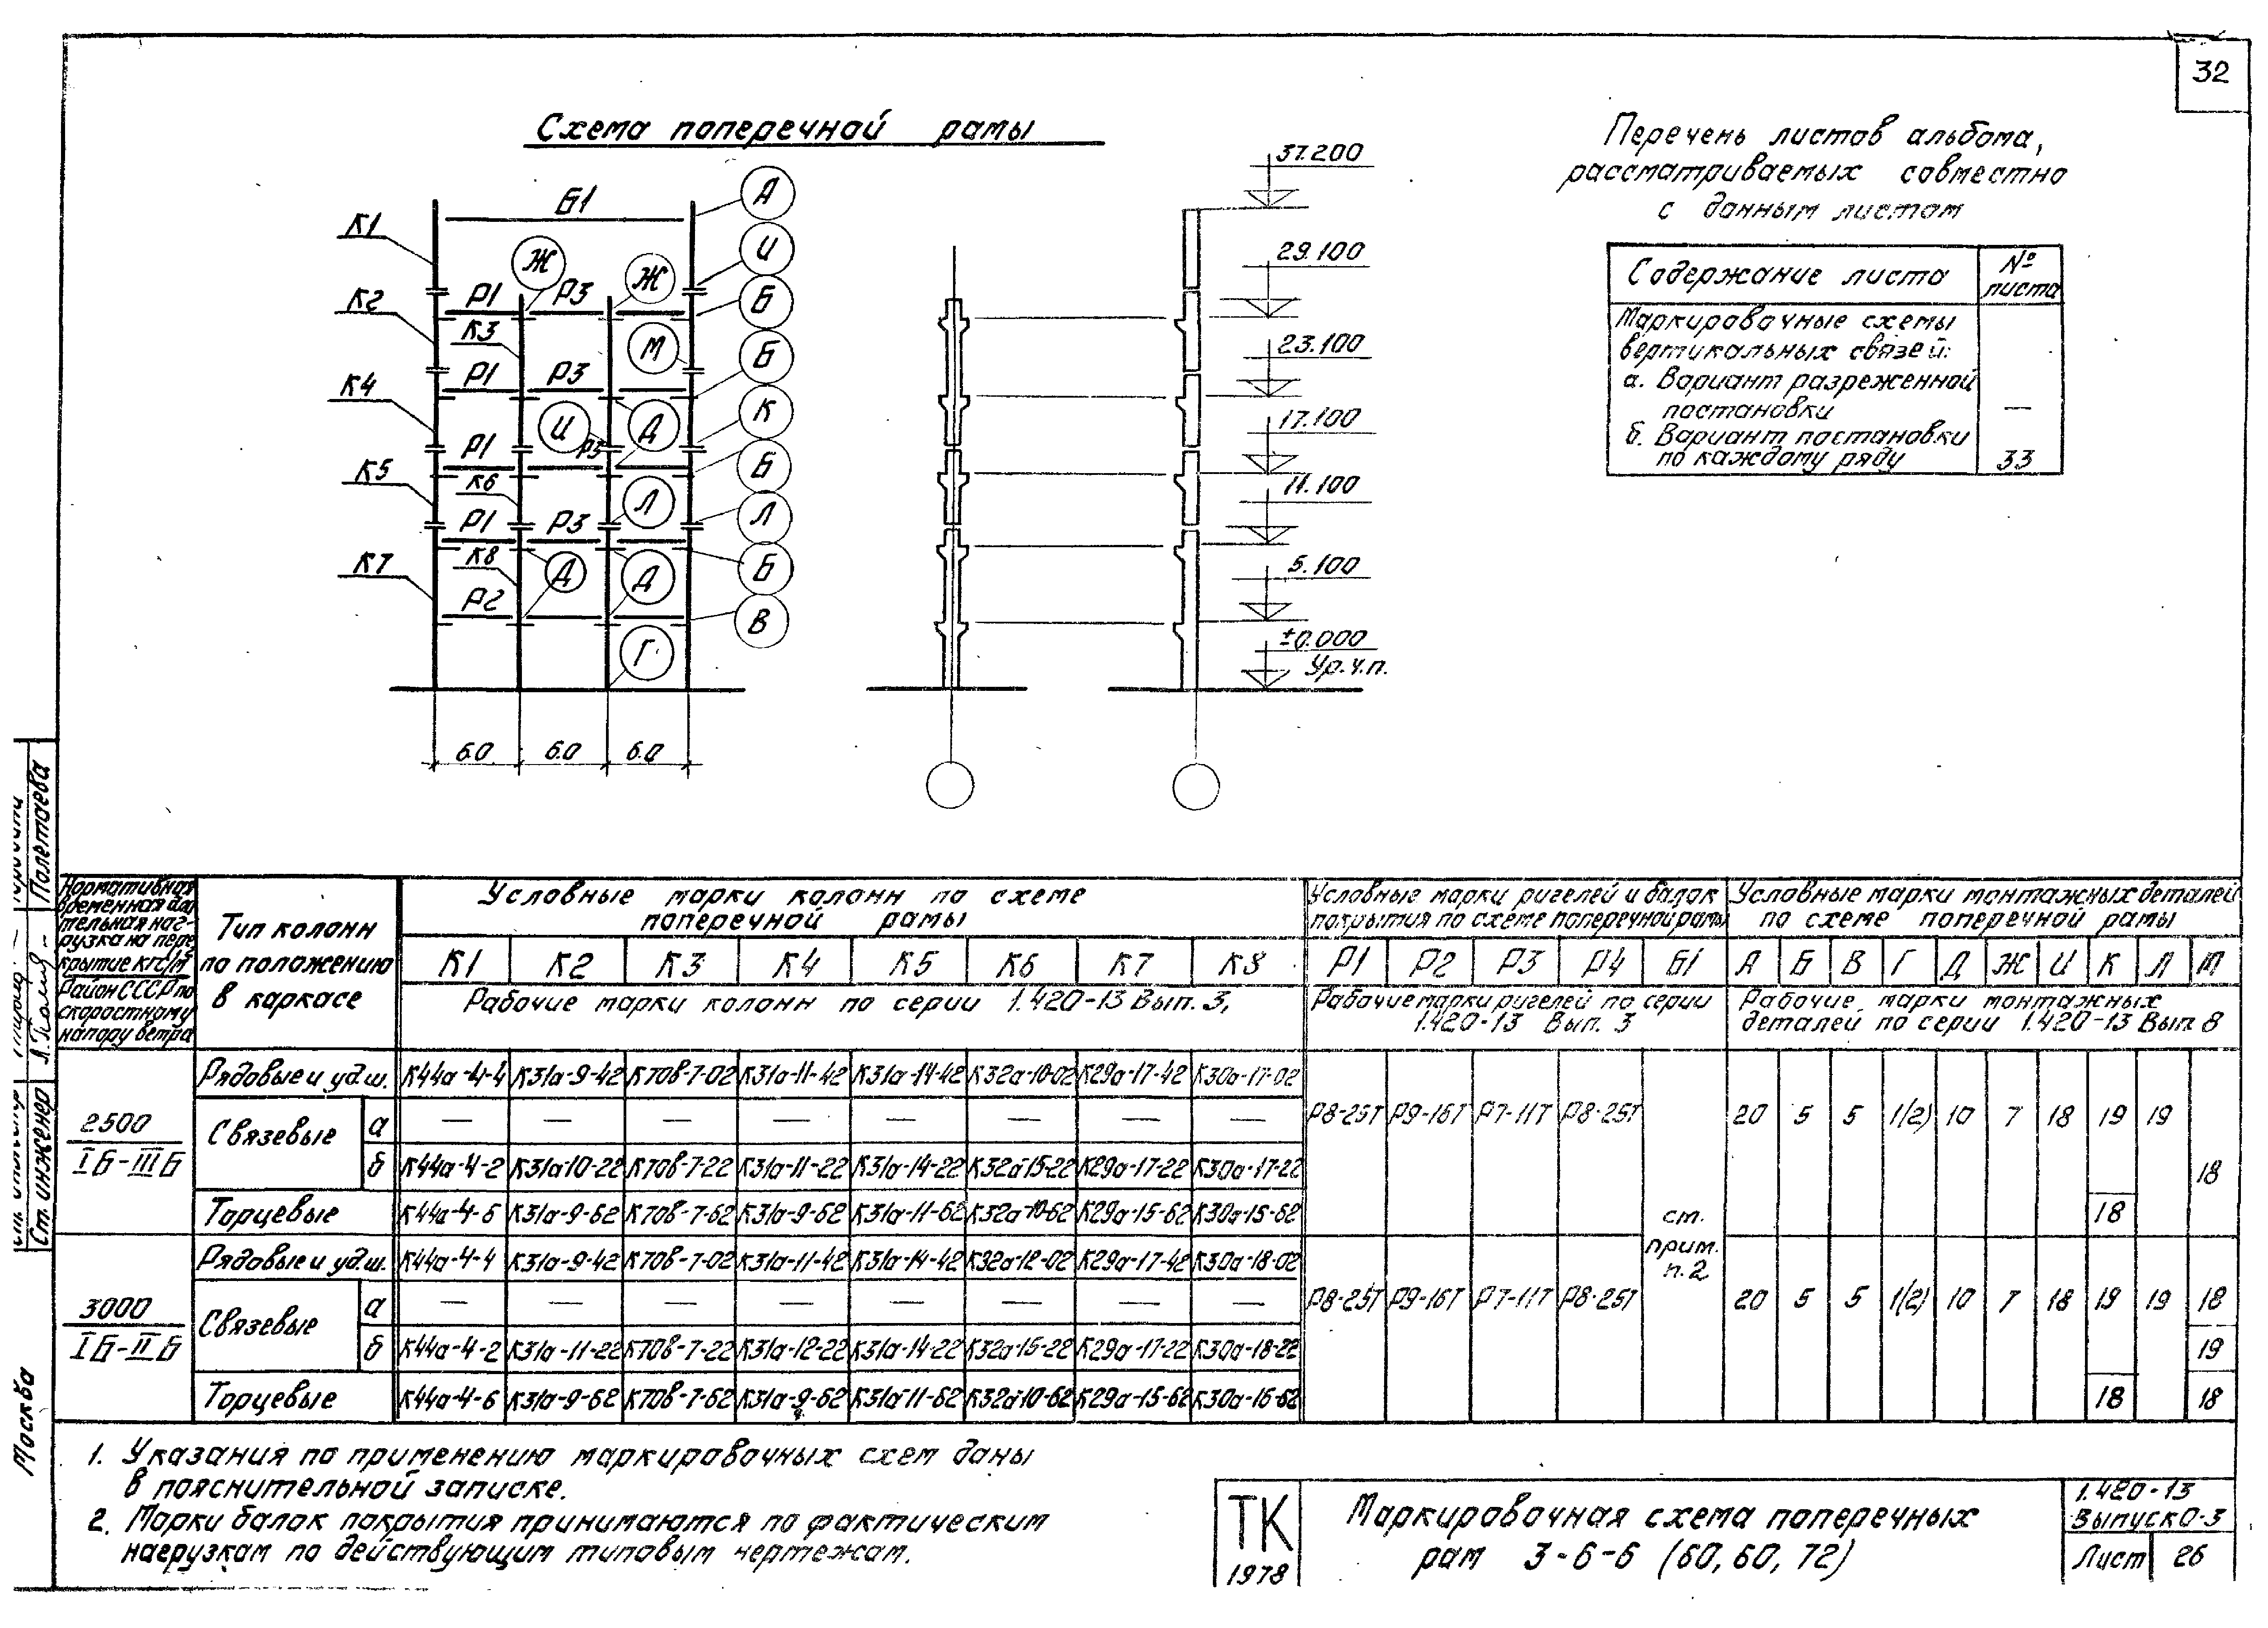 32
Схема поперечной рамы
Перечень листов альбома,
рассматриваемых совместно
с данным листом
Содержание листа
№ листа
Маркировочные схемы
вертикальных связей:
а. Вариант разреженной
постановки —
б. Вариант постановки
по каждому ряду 33
К1 Б1 А
Ж Ж И
К2 Р1 Р3 Б
К3 М Б
К4 Р1 Р3
И Д К
Р1 Р3
К5 К6 Б
Л
Р1 Р3 Л
К7 К8 Д Д Б
Р2 В
Г
6.0 6.0 6.0
37.200
29.100
23.100
17.100
11.100
5.100
±0.000
Ур.ч.п.
Нормативная
временная дли
тельная наг-
рузка на пере
крытие кгс/м²
Район СССР по
скоростному
напору ветра
Тип колонн
по положению
в каркасе
Условные марки колонн по схеме
поперечной рамы
К1 К2 К3 К4 К5 К6 К7 К8
Рабочие марки колонн по серии 1.420-13 Вып. 3,
Условные марки ригелей и балок
покрытия по схеме поперечной рамы
Р1 Р2 Р3 Р4 Б1
Рабочие марки ригелей по серии
1.420-13 Вып. 3
Условные марки монтажных деталей
по схеме поперечной рамы
А Б В Г Д Ж И К Л М
Рабочие марки монтажных
деталей по серии 1.420-13 Вып 8
2500
IБ-IIIБ
Рядовые и уд.ш. К44а-4-4 К31а-9-42 К70в-7-02 К31а-11-42 К31а-14-42 К32а-10-02 К29а-17-42 К30а-17-02
Связевые
а — — — — — — — —
б К44а-4-2 К31а-10-22 К70в-7-22 К31а-11-22 К31а-14-22 К32а-15-22 К29а-17-22 К30а-17-22
Торцевые К44а-4-6 К31а-9-62 К70в-7-62 К31а-9-62 К31а-11-62 К32а-10-62 К29а-15-62 К30а-15-62
Р8-25Т Р9-16Т Р7-11Т Р8-25Т
20 5 5 1(2) 10 7 18 19 19
18
18
3000
IБ-IIБ
Рядовые и уд.ш. К44а-4-4 К31а-9-42 К70в-7-02 К31а-11-42 К31а-14-42 К32а-12-02 К29а-17-42 К30а-18-02
Связевые
а — — — — — — — —
б К44а-4-2 К31а-11-22 К70в-7-22 К31а-12-22 К31а-14-22 К32а-15-22 К29а-17-22 К30а-18-22
Торцевые К44а-4-6 К31а-9-62 К70в-7-62 К31а-9-62 К31а-11-62 К32а-10-62 К29а-15-62 К30а-16-62
Р8-25Т Р9-16Т Р7-11Т Р8-25Т
ст.
прим.
п.2
20 5 5 1(2) 10 7 18 19 19 18
19
18 18
1. Указания по применению маркировочных схем даны
в пояснительной записке.
2. Марки балок покрытия принимаются по фактическим
нагрузкам по действующим типовым чертежам.
ТК
1978
Маркировочная схема поперечных
рам 3-6-6 (60, 60, 72)
1.420-13
Выпуск 0-3
Лист 26
Полетаева
Ст. инженер
Москва